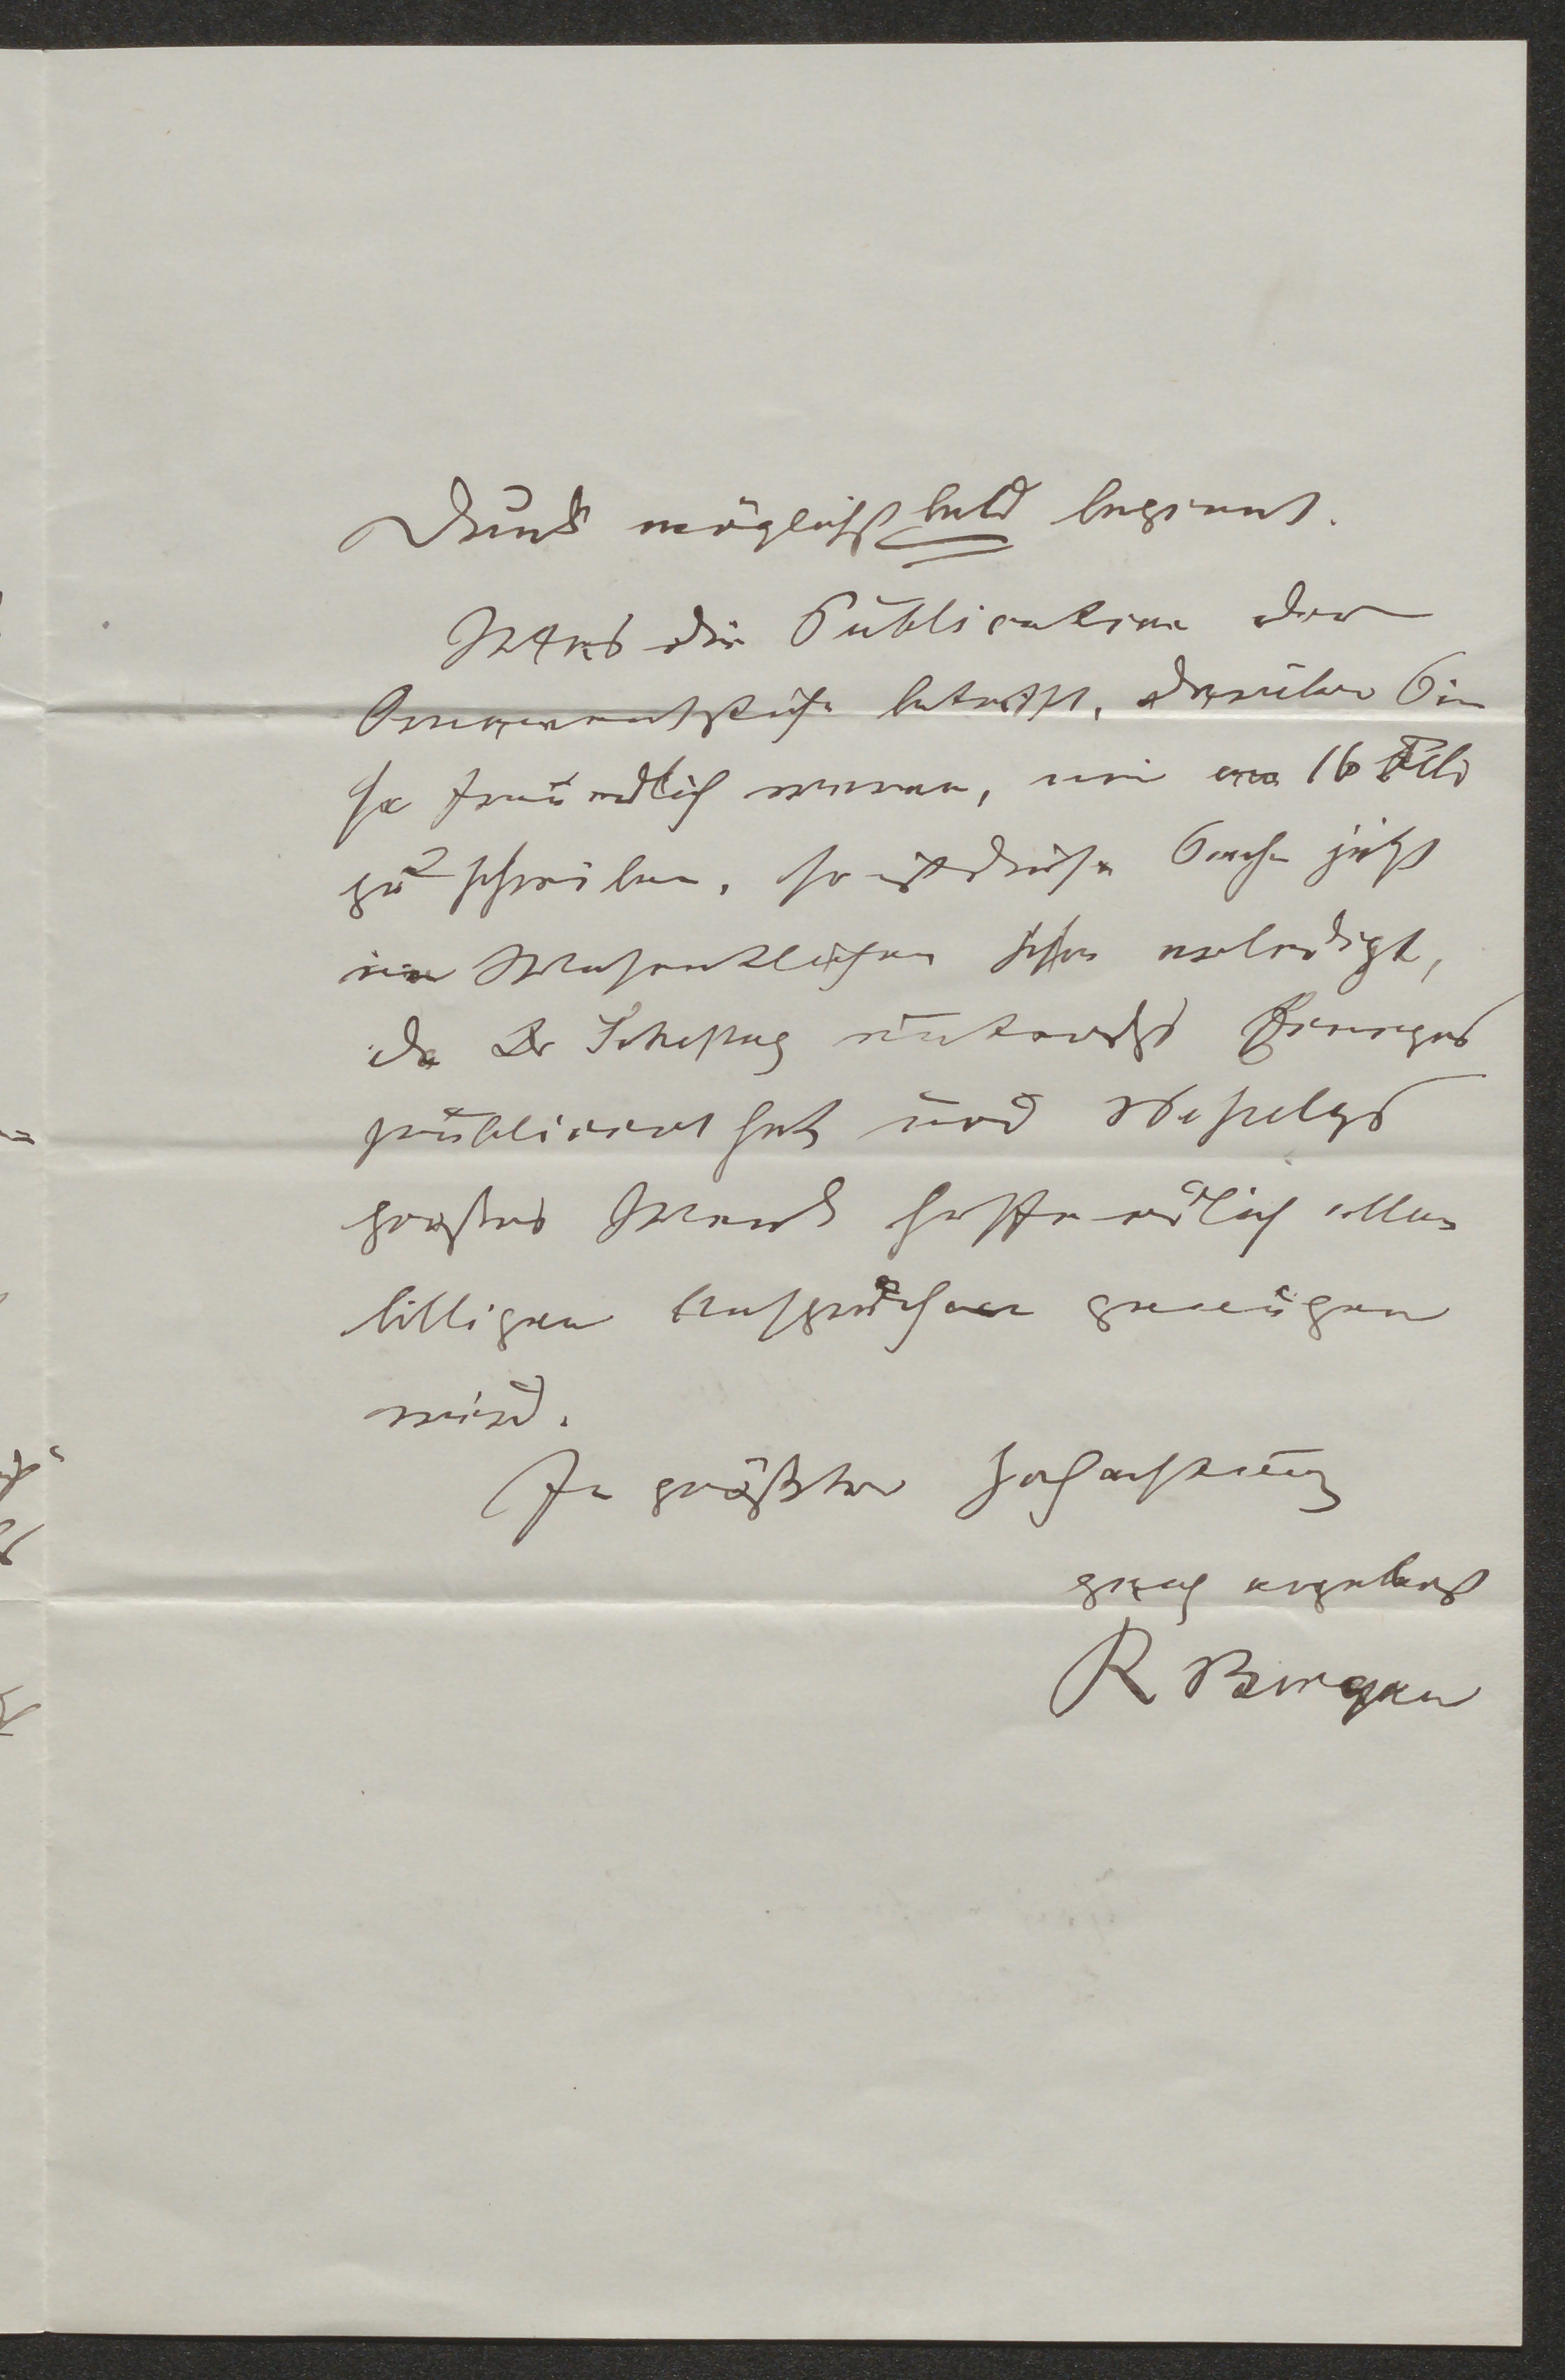 Druck möglichst bald beginnt.
Was die Publication der
betrifft, darüber Sie
so freundlich waren, mir am 16 Feb
zu schreiben, so ist diese Sache jetzt
im Wesentlichen schon erledigt,
da Dr
publiciert hat und
großes Werk hoffendlich allen
billigen Ansprüchen genügen
wird.
In größter Hochachtung
ganz ergebenst
R Bergau